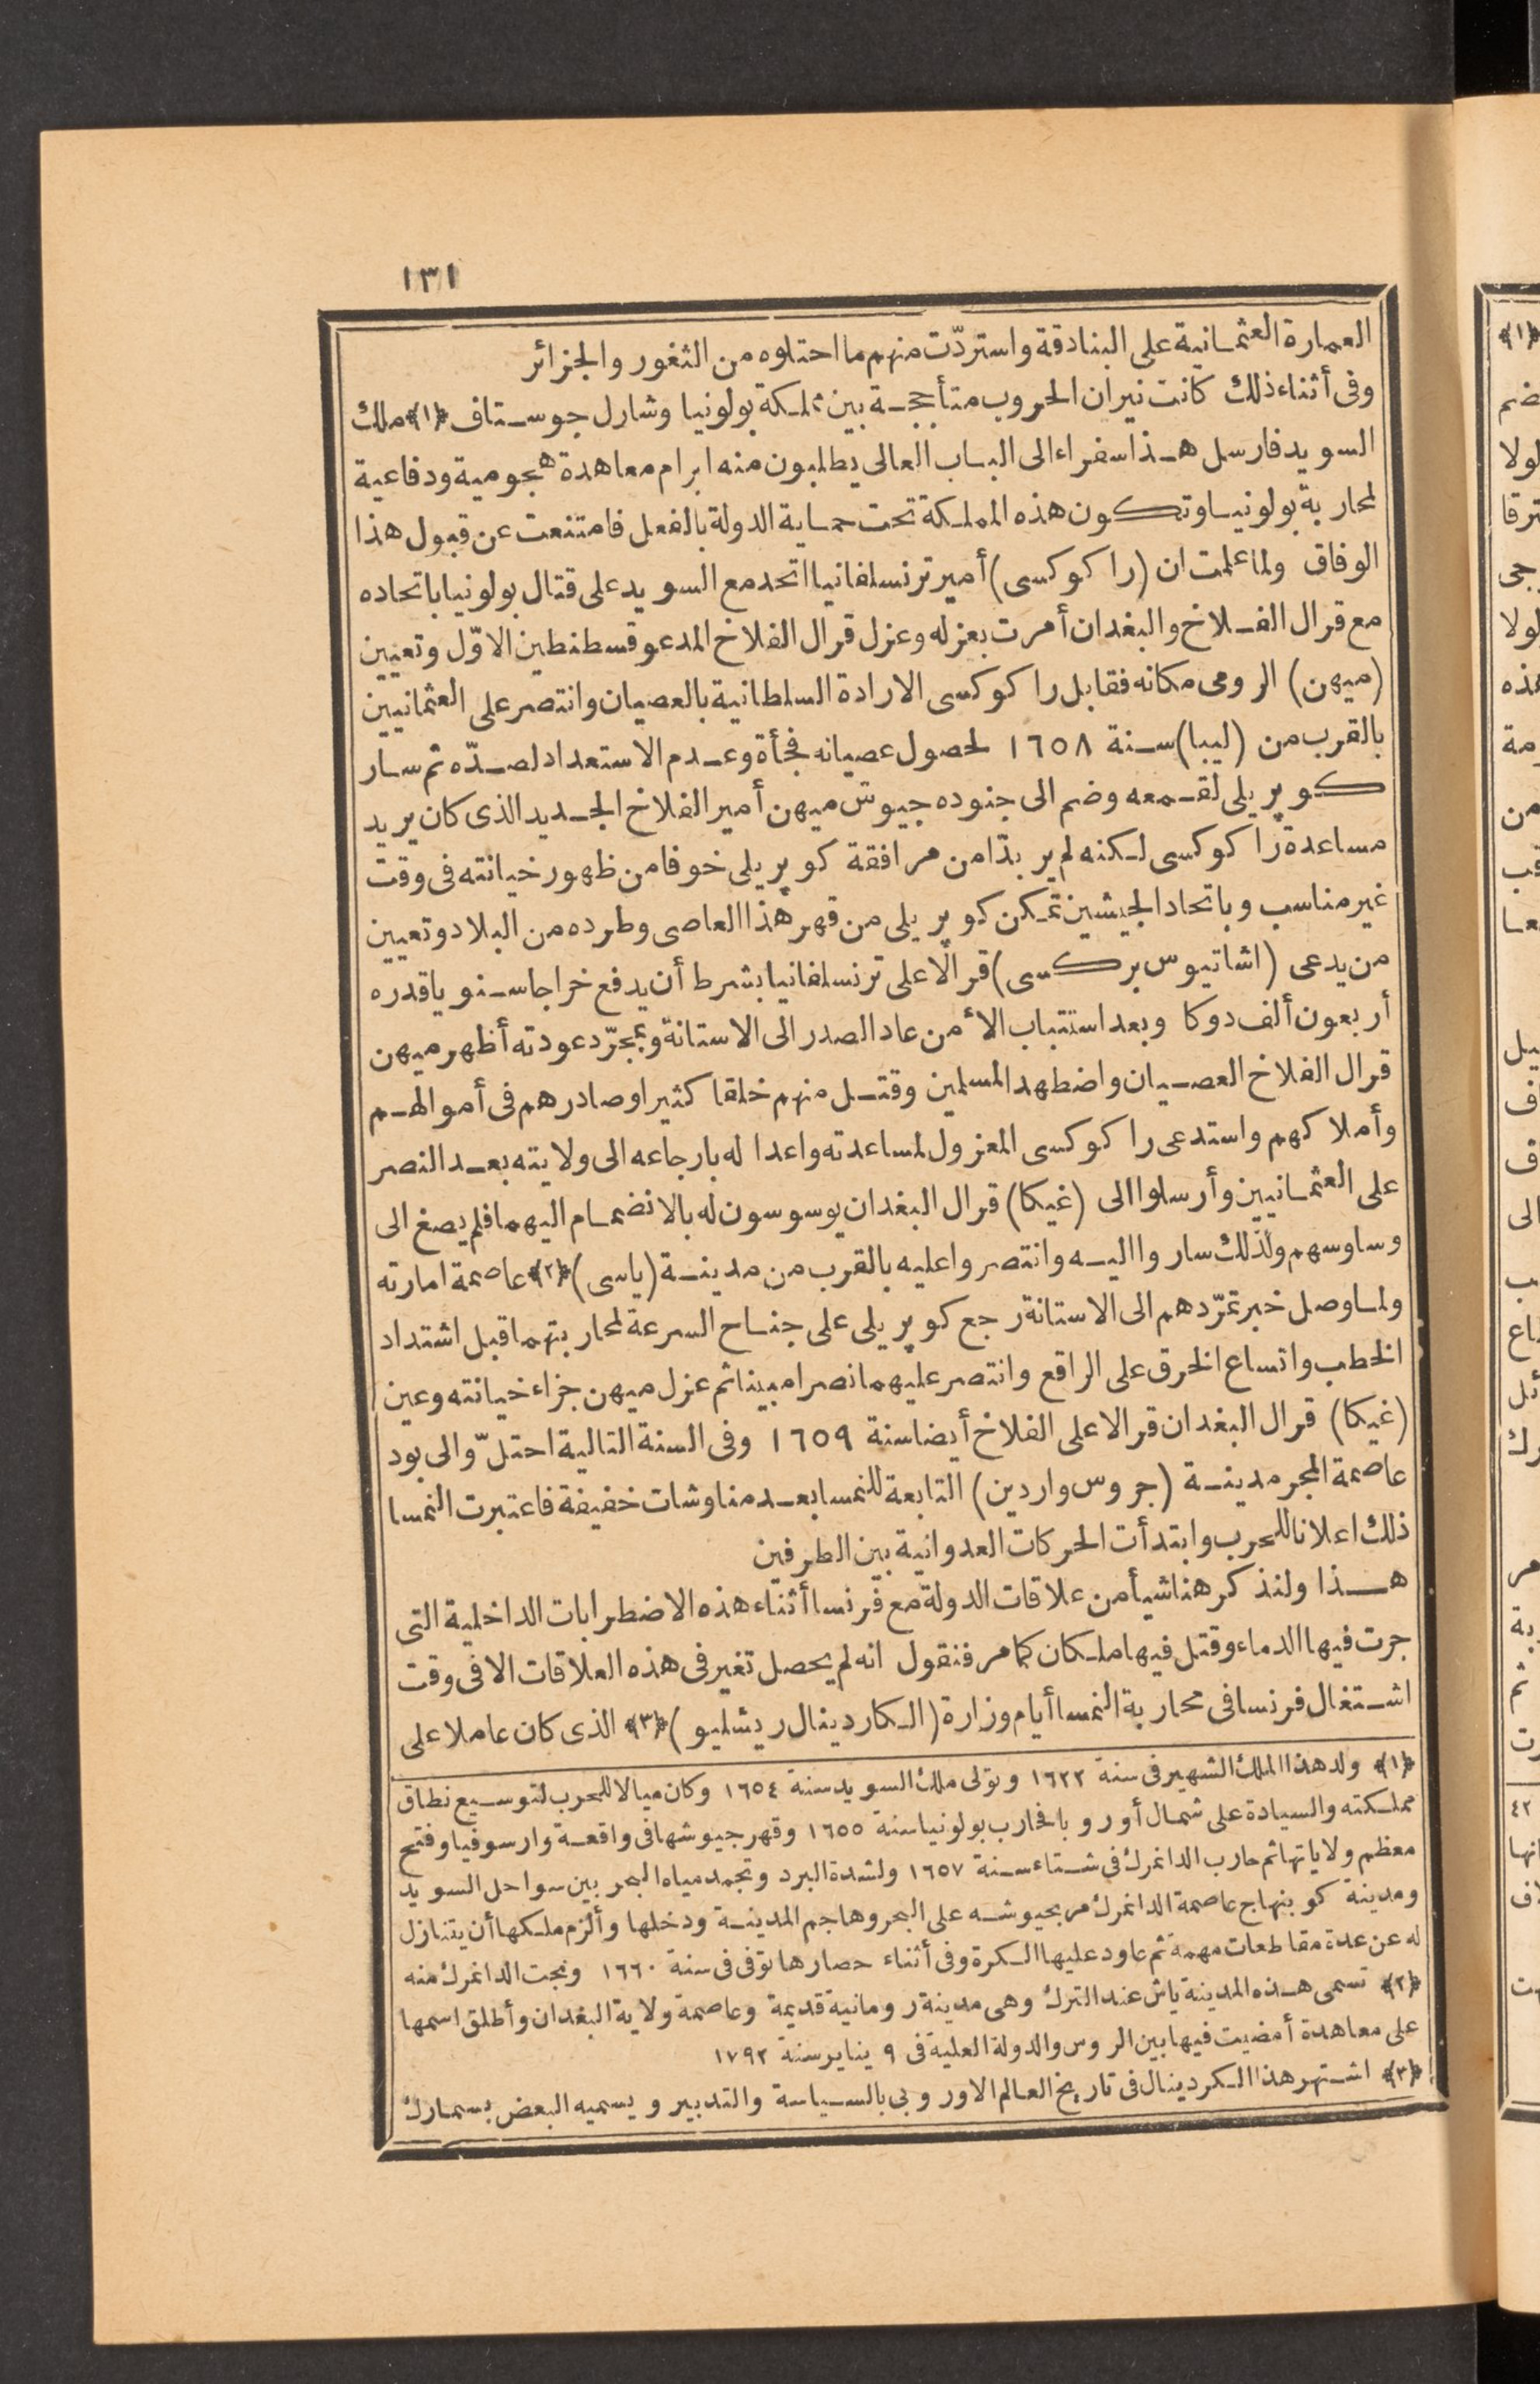 ١٣١
العمارة العثمانية على البنادقة واستردّت منهم ما احتلوه من الثغور والجزائر
وفى أثناء ذلك كانت نيران الحروب متأججة بين مملكة بولونيا وشارل جوستاف ﴿١﴾ ملك
السويد فارسل هذا سفراء الى الباب العالى يطلبون منه ابرام معاهدة هجومية ودفاعية
لمحاربة بولونيا وتكون هذه المملكة تحت حماية الدولة بالفعل فامتنعت عن قبول هذا
الوفاق ولما علمت ان (راكوكسى) أمير ترنسلفانيا اتحد مع السويد على قتال بولونيا باتحاده
مع قرال الفلاخ والبغدان أمرت بعزله وعزل قرال الفلاخ المدعو قسطنطين الاوّل وتعيين
(ميهن) الرومى مكانه فقابل راكوكسى الارادة السلطانية بالعصيان وانتصر على العثمانيين
بالقرب من (ليبا) سنة ١٦٥٨ لحصول عصيانه فجأة وعدم الاستعداد لصدّه ثم سار
كوپريلى لقمعه وضم الى جنوده جيوش ميهن أمير الفلاخ الجديد الذى كان يريد
مساعدة راكوكسى لكنه لم ير بدّا من مرافقة كوپريلى خوفا من ظهور خيانته فى وقت
غير مناسب وباتحاد الجيشين تمكن كوپريلى من قهر هذا العاصى وطرده من البلاد وتعيين
من يدعى (اشاتيوس بركسى) قرالا على ترنسلفانيا بشرط أن يدفع خراجا سنويا قدره
أربعون ألف دوكا وبعد استتباب الأمن عاد الصدر الى الاستانة وبمجرّد عودته أظهر ميهن
قرال الفلاخ العصيان واضطهد المسلمين وقتل منهم خلقا كثيرا وصادرهم فى أموالهم
وأملاكهم واستدعى راكوكسى المعزول لمساعدته واعدا له بارجاعه الى ولايته بعد النصر
على العثمانيين وأرسلوا الى (غيكا) قرال البغدان يوسوسون له بالانضمام اليهما فلم يصغ الى
وساوسهم ولذلك ساروا اليه وانتصروا عليه بالقرب من مدينة (ياسى) ﴿٢﴾ عاصمة امارته
ولما وصل خبر تمرّدهم الى الاستانة رجع كوپريلى على جناح السرعة لمحاربتهما قبل اشتداد
الخطب واتساع الخرق على الراقع وانتصر عليهما نصرا مبينا ثم عزل ميهن جزاء خيانته وعين
(غيكا) قرال البغدان قرالا على الفلاخ أيضا سنة ١٦٥٩ وفى السنة التالية احتلّ والى بود
عاصمة المجر مدينة (جروس واردين) التابعة للنمسا بعد مناوشات خفيفة فاعتبرت النمسا
ذلك اعلانا للحرب وابتدأت الحركات العدوانية بين الطرفين
هذا ولنذكر هنا شيأ من علاقات الدولة مع فرنسا أثناء هذه الاضطرابات الداخلية التى
جرت فيها الدماء وقتل فيها ملكان كما مر فنقول انه لم يحصل تغير فى هذه العلاقات الا فى وقت
اشتغال فرنسا فى محاربة النمسا أيام وزارة (الكاردينال ريشليو) ﴿٣﴾ الذى كان عاملا على
﴿١﴾ ولد هذا الملك الشهير فى سنة ١٦٢٢ وتولى ملك السويد سنة ١٦٥٤ وكان ميالا للحرب لتوسيع نطاق
مملكته والسيادة على شمال أوروبا فحارب بولونيا سنة ١٦٥٥ وقهر جيوشها فى واقعة وارسوفيا وفتح
معظم ولاياتها ثم حارب الدانمرك فى شتاء سنة ١٦٥٧ ولشدة البرد وتجمد مياه البحر بين سواحل السويد
ومدينة كوبنهاج عاصمة الدانمرك مر بجيوشه على البحر وهاجم المدينة ودخلها وألزم ملكها أن يتنازل
له عن عدة مقاطعات مهمة ثم عاود عليها الكرة وفى أثناء حصارها توفى فى سنة ١٦٦٠ ونجت الدانمرك منه
﴿٢﴾ تسمى هذه المدينة ياش عند الترك وهى مدينة رومانية قديمة وعاصمة ولاية البغدان وأطلق اسمها
على معاهدة أمضيت فيها بين الروس والدولة العلية فى ٩ يناير سنة ١٧٩٢
﴿٣﴾ اشتهر هذا الكردينال فى تاريخ العالم الاوروبى بالسياسة والتدبير ويسميه البعض بسمارك